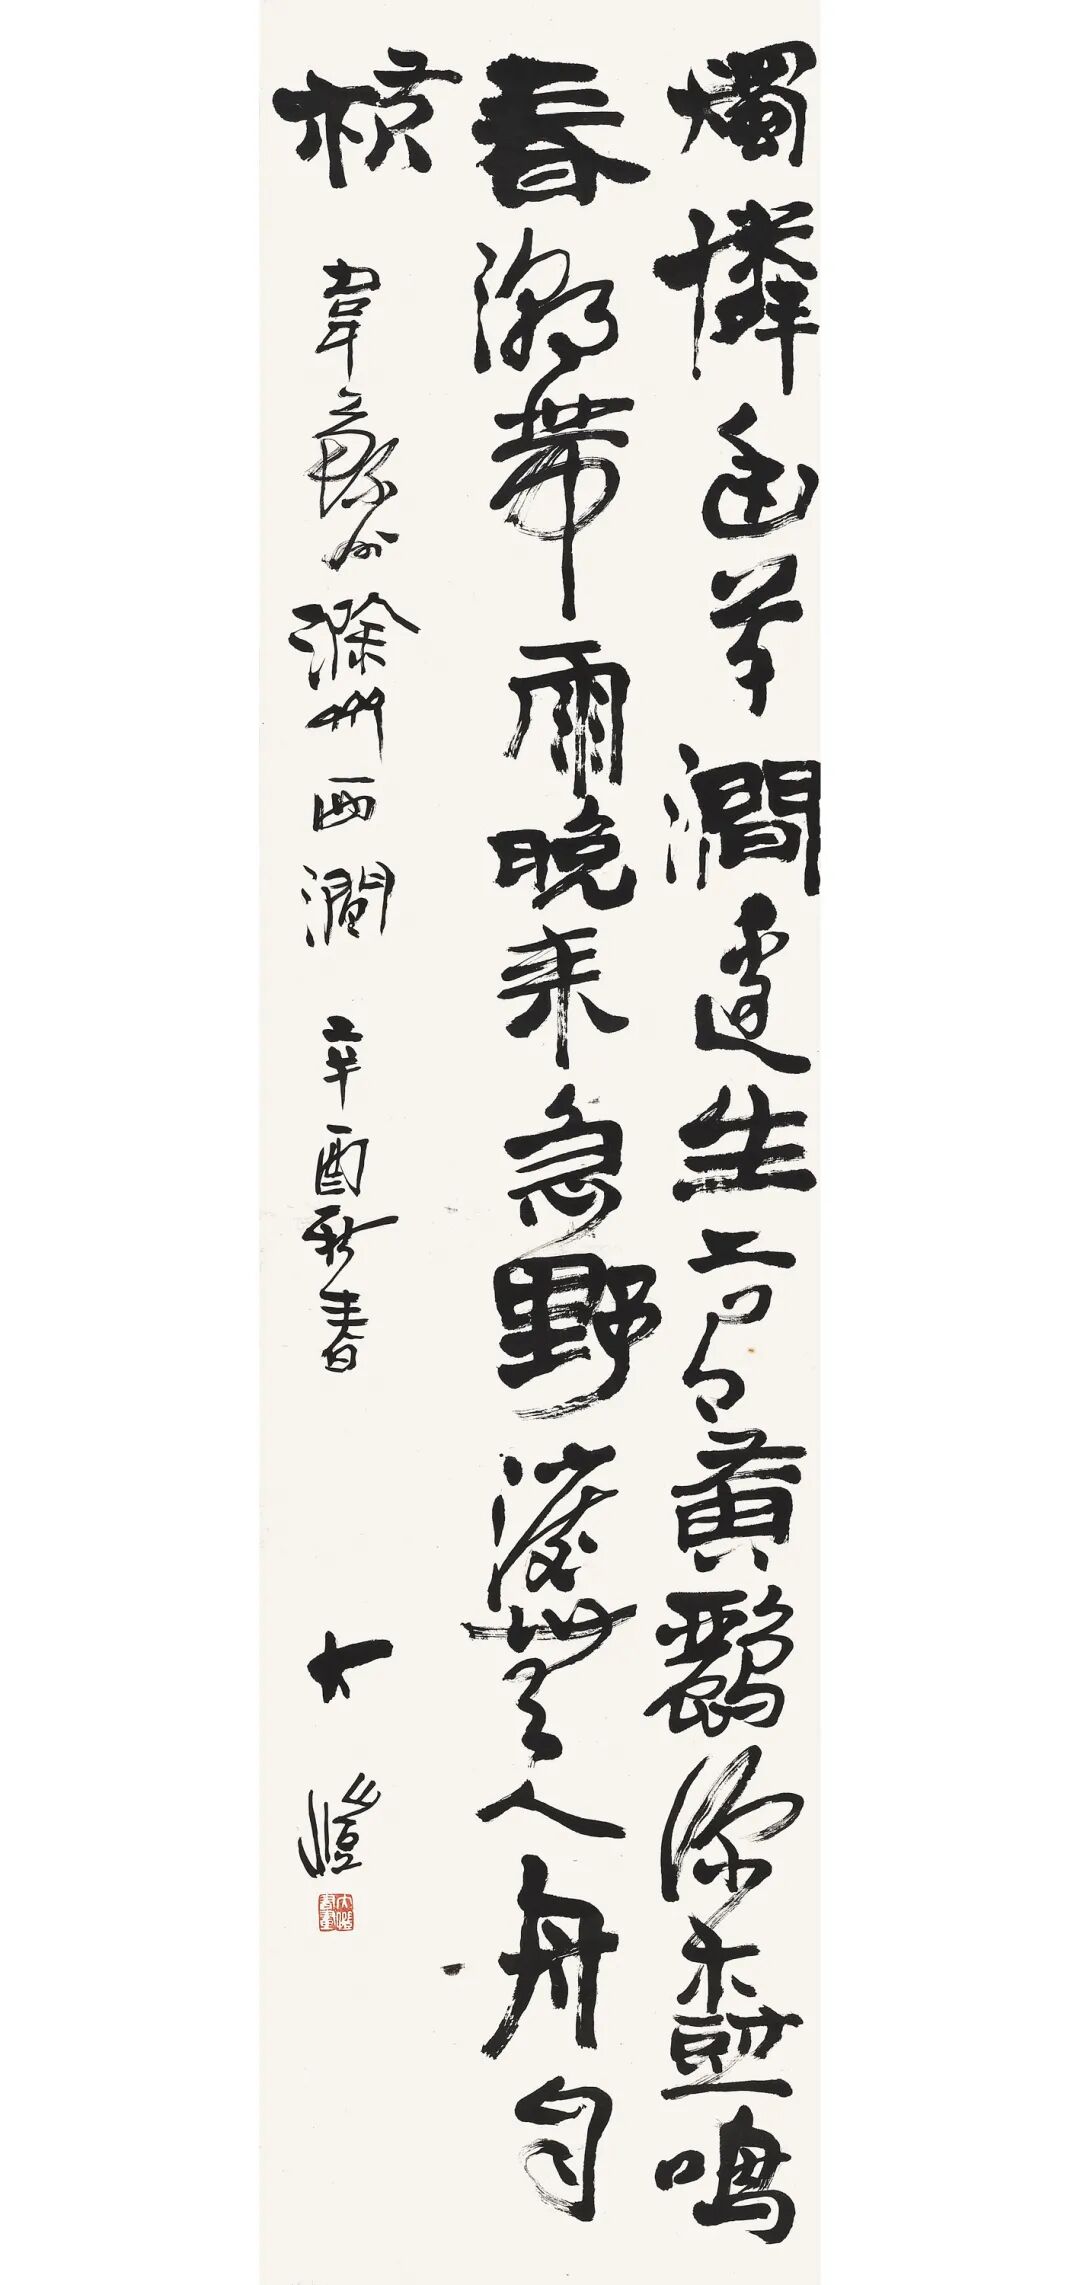 獨憐幽草澗邊生上有黃鸝深樹鳴
春潮帶雨晚來急野渡無人舟自
橫 韋蘇州滁州西澗 辛酉新春 大愷
大愷書畫